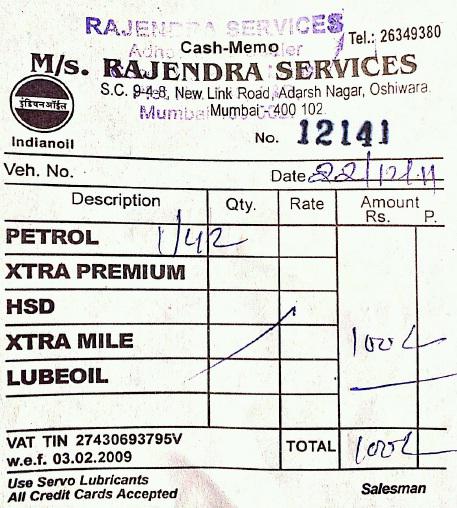 RAJENDRA SERVICES
Cash-Memo
Tel.: 26349380
M/s. RAJENDRA SERVICES
S.C. 9-4-8, New Link Road, Adarsh Nagar, Oshiwara.
Mumbai - 400 102.
इंडियनऑईल
Indianoil
No. 12141
Veh. No.
Date 22/12/11
Description Qty. Rate Amount
Rs. P.
PETROL 1/42
XTRA PREMIUM
HSD
XTRA MILE 100
LUBEOIL
VAT TIN 27430693795V
w.e.f. 03.02.2009
TOTAL 100
Use Servo Lubricants
All Credit Cards Accepted
Salesman